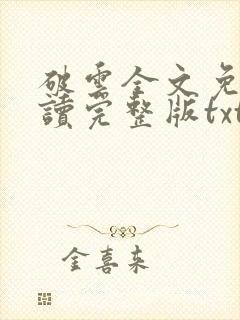 破雲全文免
讀完整版txt
金喜来